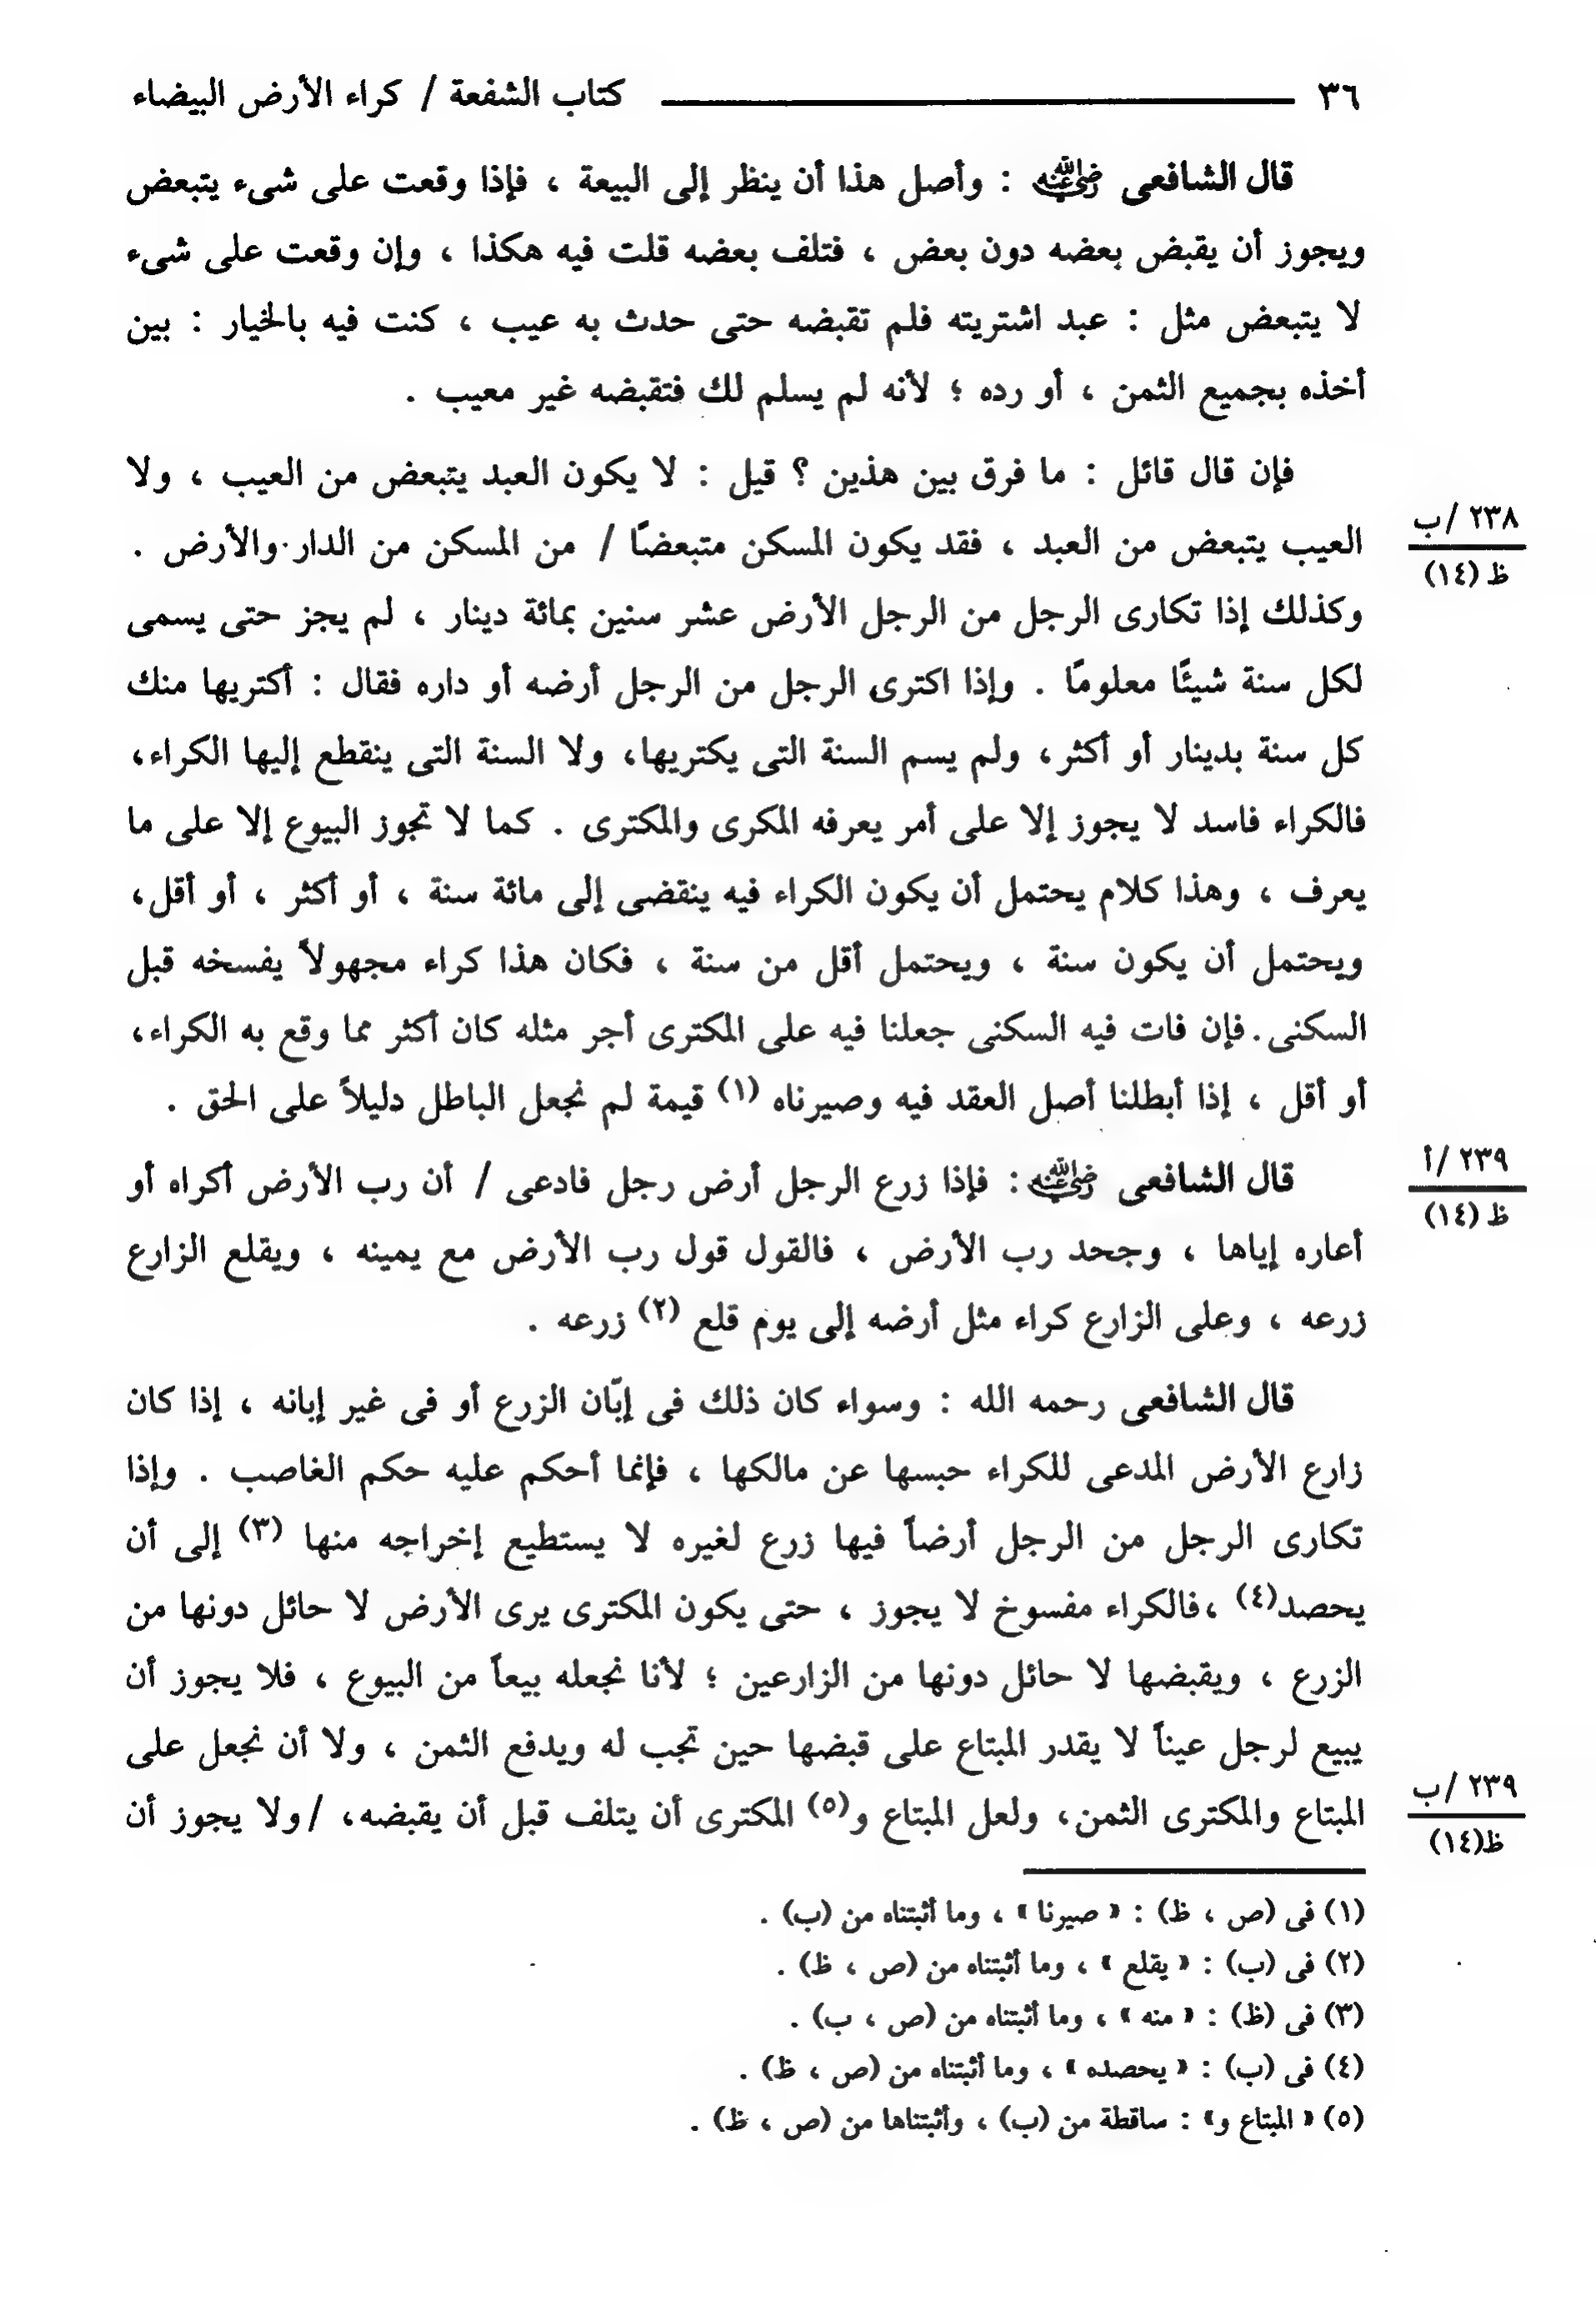 ٣٦ ــــــــ كتاب الشفعة / كراء الأرض البيضاء
قال الشافعى رضي الله عنه : وأصل هذا أن ينظر إلى البيعة ، فإذا وقعت على شىء يتبعض
ويجوز أن يقبض بعضه دون بعض ، فتلف بعضه قلت فيه هكذا ، وإن وقعت على شىء
لا يتبعض مثل : عبد اشتريته فلم تقبضه حتى حدث به عيب ، كنت فيه بالخيار : بين
أخذه بجميع الثمن ، أو رده ؛ لأنه لم يسلم لك فتقبضه غير معيب .
فإن قال قائل : ما فرق بين هذين ؟ قيل : لا يكون العبد يتبعض من العيب ، ولا
العيب يتبعض من العبد ، فقد يكون المسكن متبعضًا / من المسكن من الدار والأرض .
٢٣٨ /ب
ظ (١٤)
وكذلك إذا تكارى الرجل من الرجل الأرض عشر سنين بمائة دينار ، لم يجز حتى يسمى
لكل سنة شيئًا معلومًا . وإذا اكترى الرجل من الرجل أرضه أو داره فقال : أكتريها منك
كل سنة بدينار أو أكثر، ولم يسم السنة التى يكتريها، ولا السنة التى ينقطع إليها الكراء،
فالكراء فاسد لا يجوز إلا على أمر يعرفه المكرى والمكترى . كما لا تجوز البيوع إلا على ما
يعرف ، وهذا كلام يحتمل أن يكون الكراء فيه ينقضى إلى مائة سنة ، أو أكثر ، أو أقل،
ويحتمل أن يكون سنة ، ويحتمل أقل من سنة ، فكان هذا كراء مجهولاً يفسخه قبل
السكنى. فإن فات فيه السكنى جعلنا فيه على المكترى أجر مثله كان أكثر مما وقع به الكراء،
أو أقل ، إذا أبطلنا أصل العقد فيه وصيرناه (١) قيمة لم نجعل الباطل دليلاً على الحق .
قال الشافعى رضي الله عنه : فإذا زرع الرجل أرض رجل فادعى / أن رب الأرض أكراه أو
٢٣٩ /أ
ظ (١٤)
أعاره إياها ، وجحد رب الأرض ، فالقول قول رب الأرض مع يمينه ، ويقلع الزارع
زرعه ، وعلى الزارع كراء مثل أرضه إلى يوم قلع (٢) زرعه .
قال الشافعى رحمه الله : وسواء كان ذلك فى إبّان الزرع أو فى غير إبانه ، إذا كان
زارع الأرض المدعى للكراء حبسها عن مالكها ، فإنما أحكم عليه حكم الغاصب . وإذا
تكارى الرجل من الرجل أرضاً فيها زرع لغيره لا يستطيع إخراجه منها (٣) إلى أن
يحصد(٤) ،فالكراء مفسوخ لا يجوز ، حتى يكون المكترى يرى الأرض لا حائل دونها من
الزرع ، ويقبضها لا حائل دونها من الزارعين ؛ لأنا نجعله بيعاً من البيوع ، فلا يجوز أن
يبيع لرجل عيناً لا يقدر المبتاع على قبضها حين تجب له ويدفع الثمن ، ولا أن نجعل على
المبتاع والمكترى الثمن، ولعل المبتاع و(٥) المكترى أن يتلف قبل أن يقبضه، /ولا يجوز أن
٢٣٩ /ب
ظ(١٤)
(١) فى (ص ، ظ) : « صيرنا » ، وما أثبتناه من (ب) .
(٢) فى (ب) : « يقلع » ، وما أثبتناه من (ص ، ظ) .
(٣) فى (ظ) : « منه » ، وما أثبتناه من (ص ، ب) .
(٤) فى (ب) : « يحصده » ، وما أثبتناه من (ص ، ظ) .
(٥) « المبتاع و» : ساقطة من (ب) ، وأثبتناها من (ص ، ظ) .